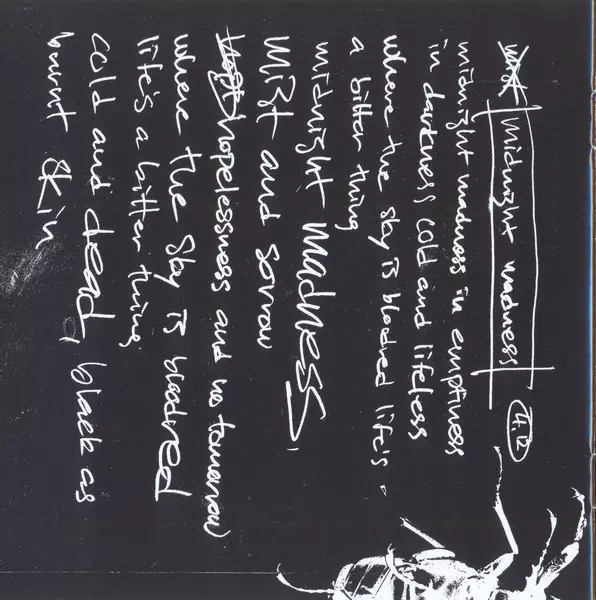 midnight madness 4:12
midnight madness in emptiness
in darkness cold and lifeless
where the sky is bloodred life's
a bitter thing
midnight madness,
mist and sorrow
hopelessness and no tomorrow
where the sky is bloodred
life's a bitter thing
cold and dead, black as
burnt skin